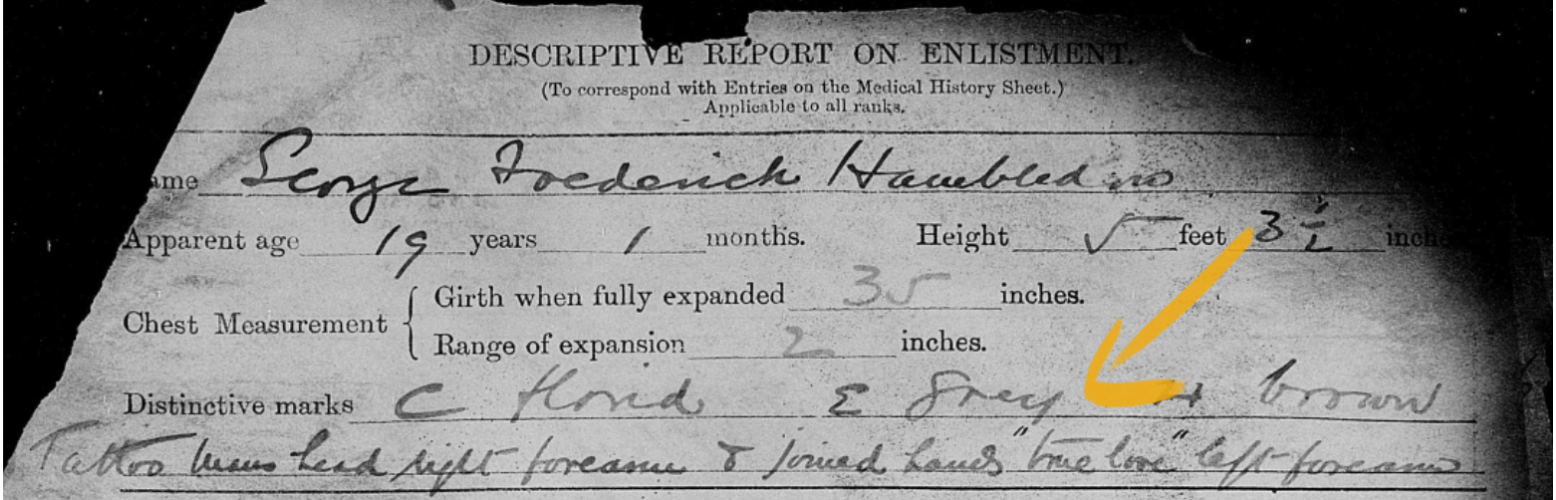 DESCRIPTIVE REPORT ON ENLISTMENT.
(To correspond with Entries on the Medical History Sheet.)
Applicable to all ranks.
ame George Frederick
Apparent age 19 years 1 months. Height 5 feet 3 ½ inche
Chest Measurement { Girth when fully expanded 35 inches.
Range of expansion 2 inches.
Distinctive marks C florid E grey H brown
Tattoo head right forearm & joined hands "true love" left forearm